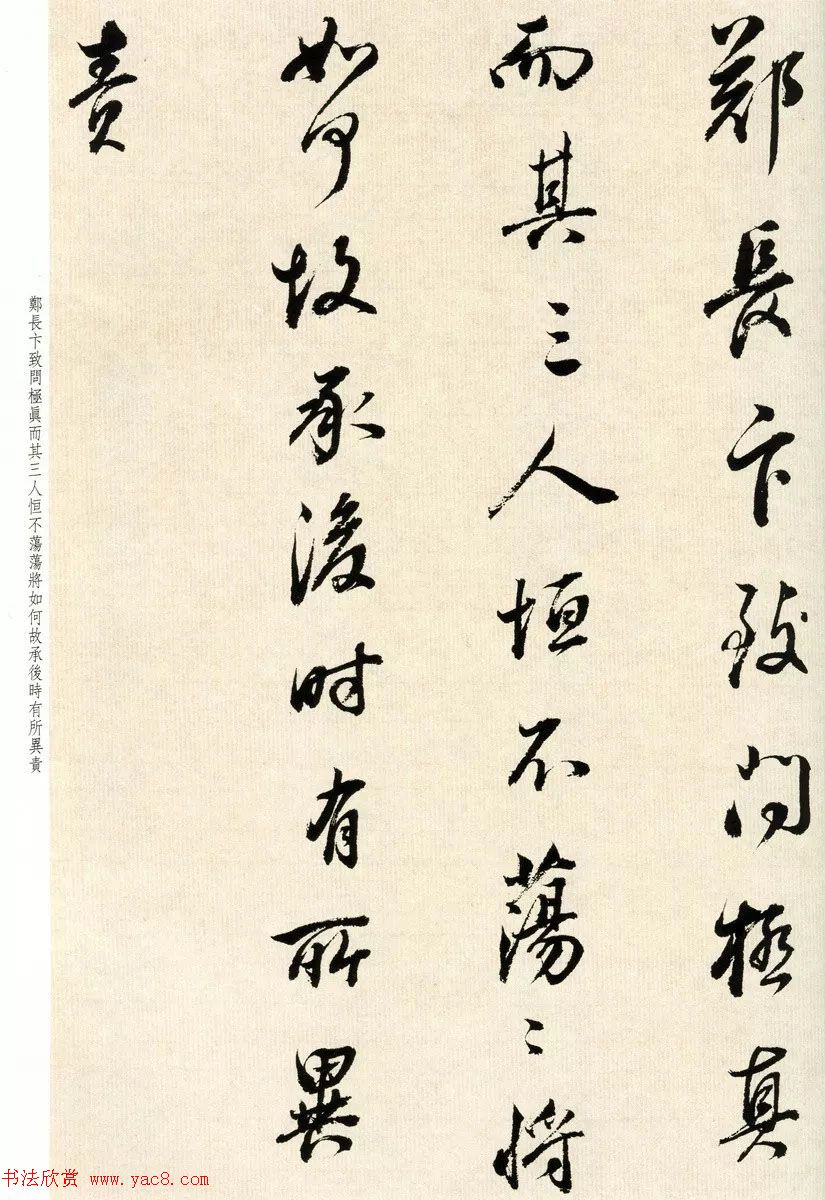 鄭長卞致問極真
而其三人恒不蕩〻將
如何故承後時有所異
責
鄭長卞致問極眞而其三人恒不蕩蕩將如何故承後時有所異責
书法欣赏 www.yac8.com